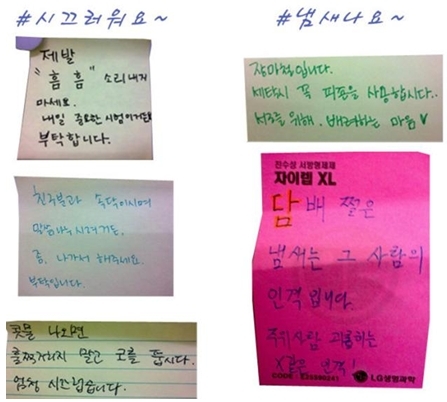 #시끄러워요~
제발
"흠흠" 소리내지
마세요.
내일 중요한 시험이거든요
부탁합니다.
친구분과 속닥이시며
말씀나누시려거든,
좀, 나가서 해주세요.
부탁입니다.
콧물 나오면
훌쩍거리지 말고 코를 풉시다.
엄청 시끄럽습니다.
#냄새나요~
장마철입니다.
세탁시 꼭 피죤을 사용합시다..
서로를 위해. 배려하는 마음♥
진수성 서방형제제
자이렙 XL
담배 쩔은
냄새는 그 사람의
인격입니다.
주위사람 괴롭히는
인격!
CODE :
LG생명과학